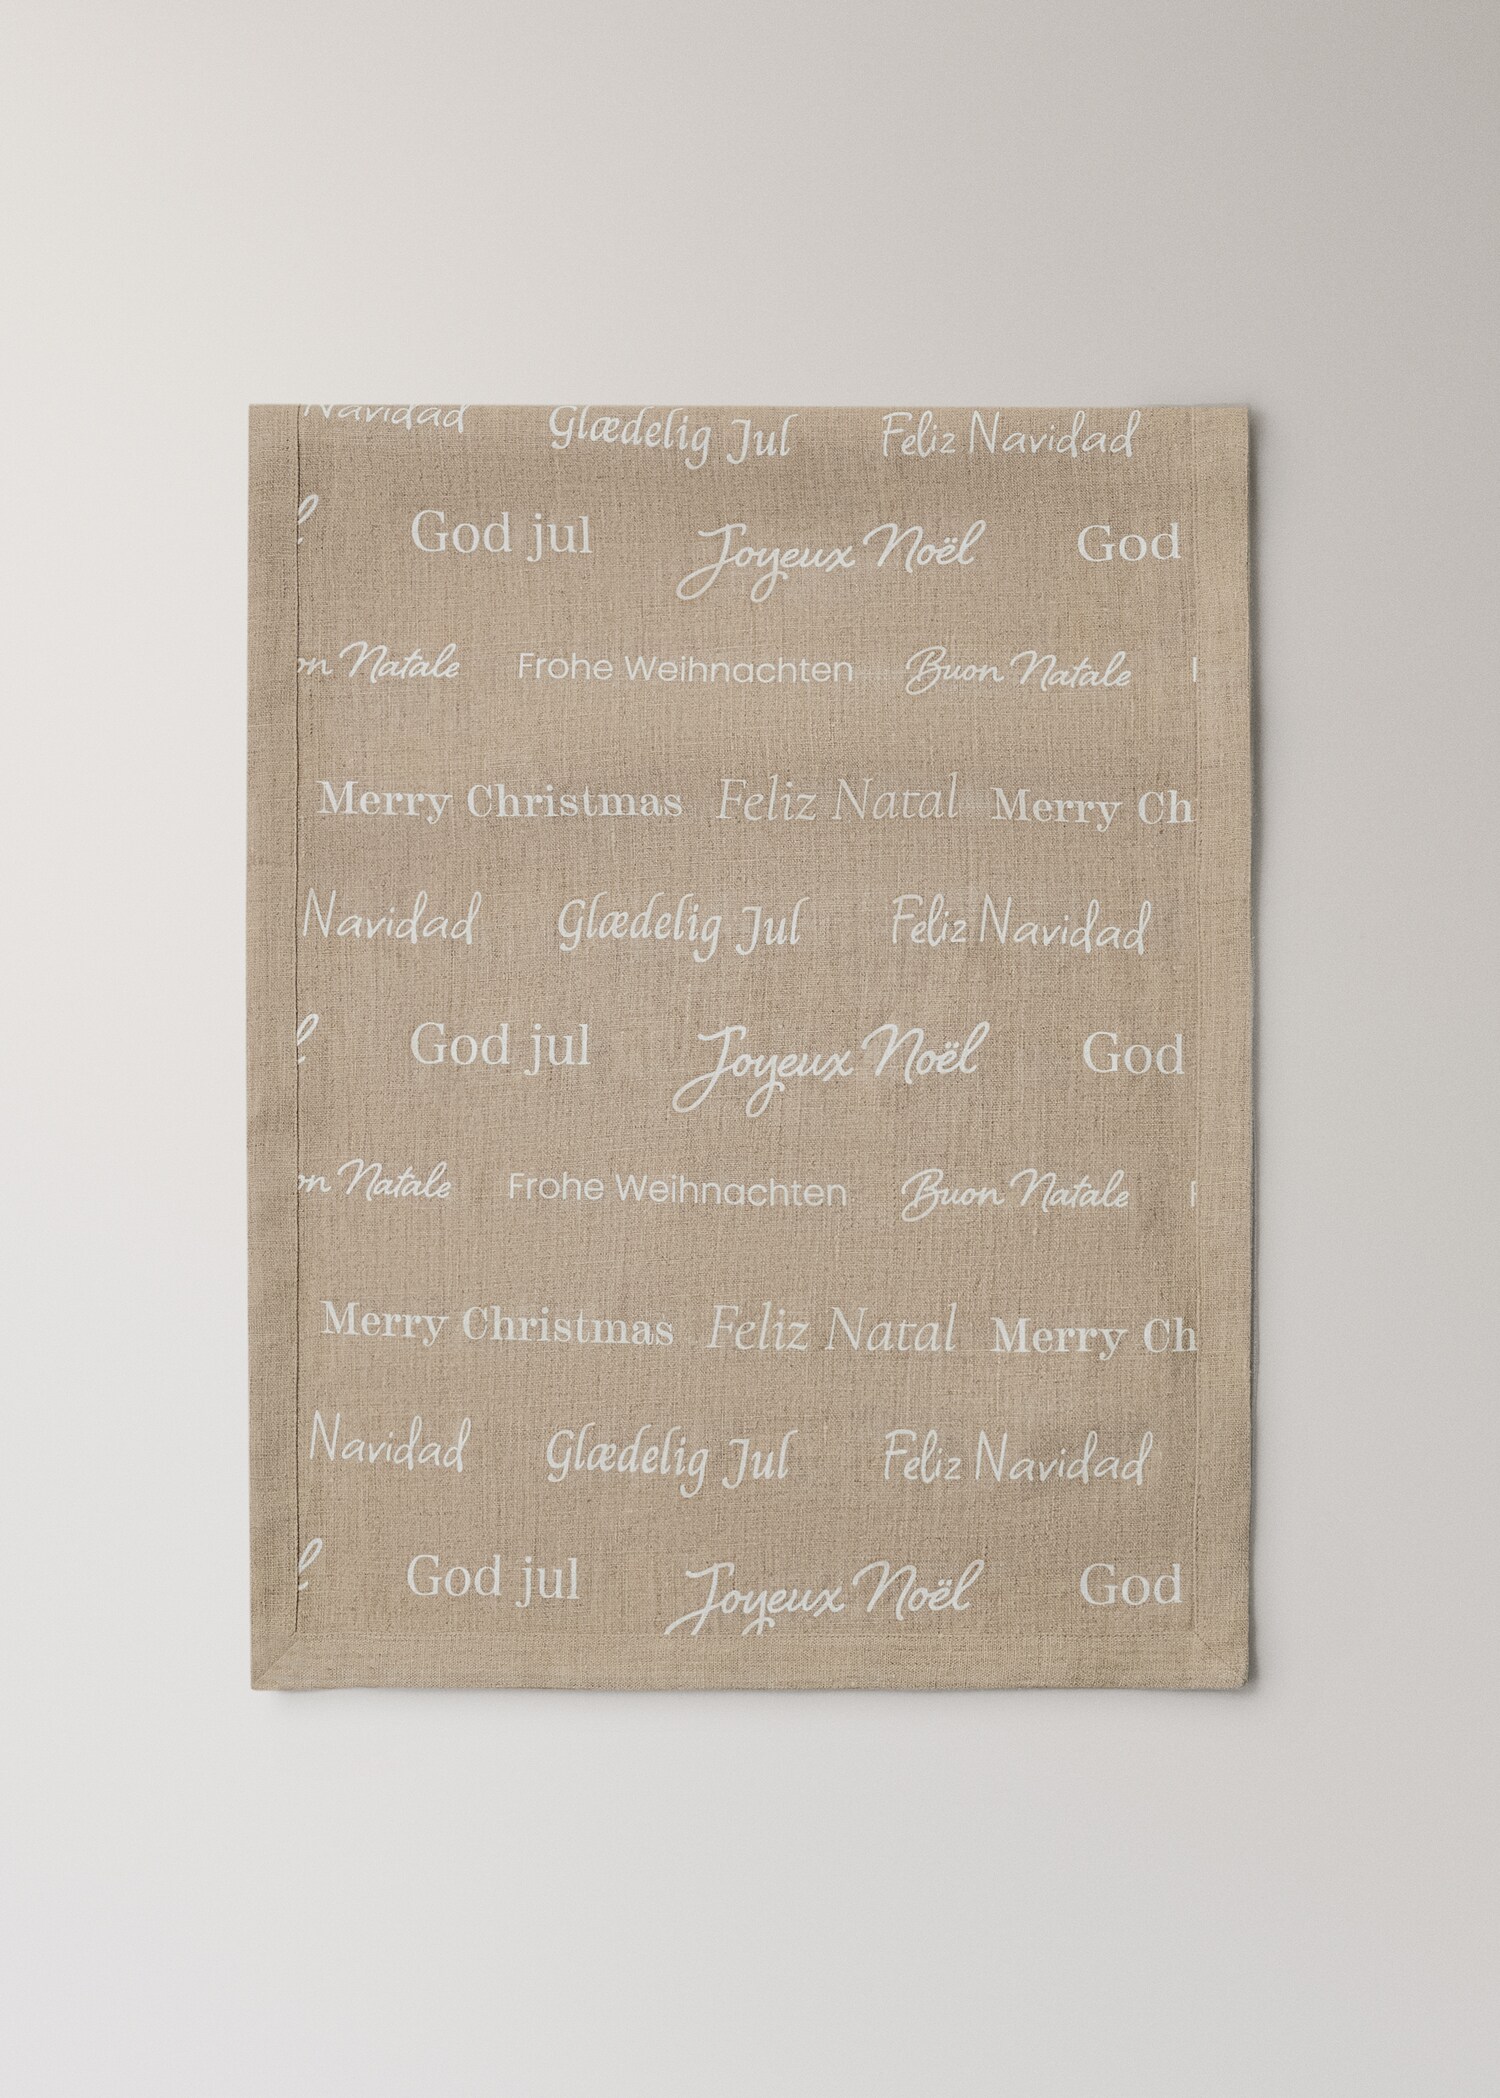 Navidad Glædelig Jul Feliz Navidad
God jul Joyeux Noël God
on Natale Frohe Weihnachten Buon Natale
Merry Christmas Feliz Natal Merry Ch
Navidad Glædelig Jul Feliz Navidad
God jul Joyeux Noël God
on Natale Frohe Weihnachten Buon Natale
Merry Christmas Feliz Natal Merry Ch
Navidad Glædelig Jul Feliz Navidad
God jul Joyeux Noël God